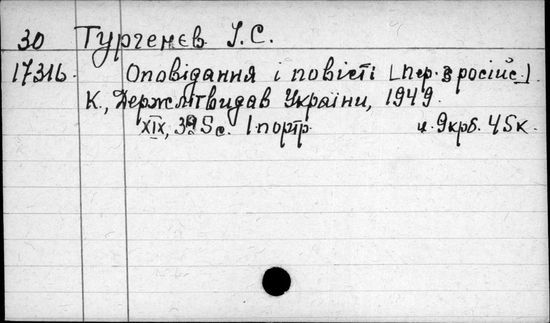 30 Тургенєв І.С.
17316. Оповідання і повісті [Пер. з російс.]
К., Держлітвидав України, 1949.
XIX, 395 с. 1 портр. ц. 9 крб. 45 к.